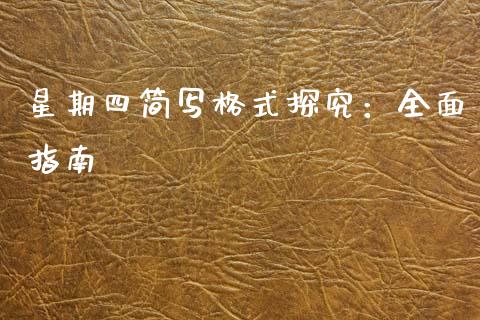 星期四简写格式探究：全面
指南